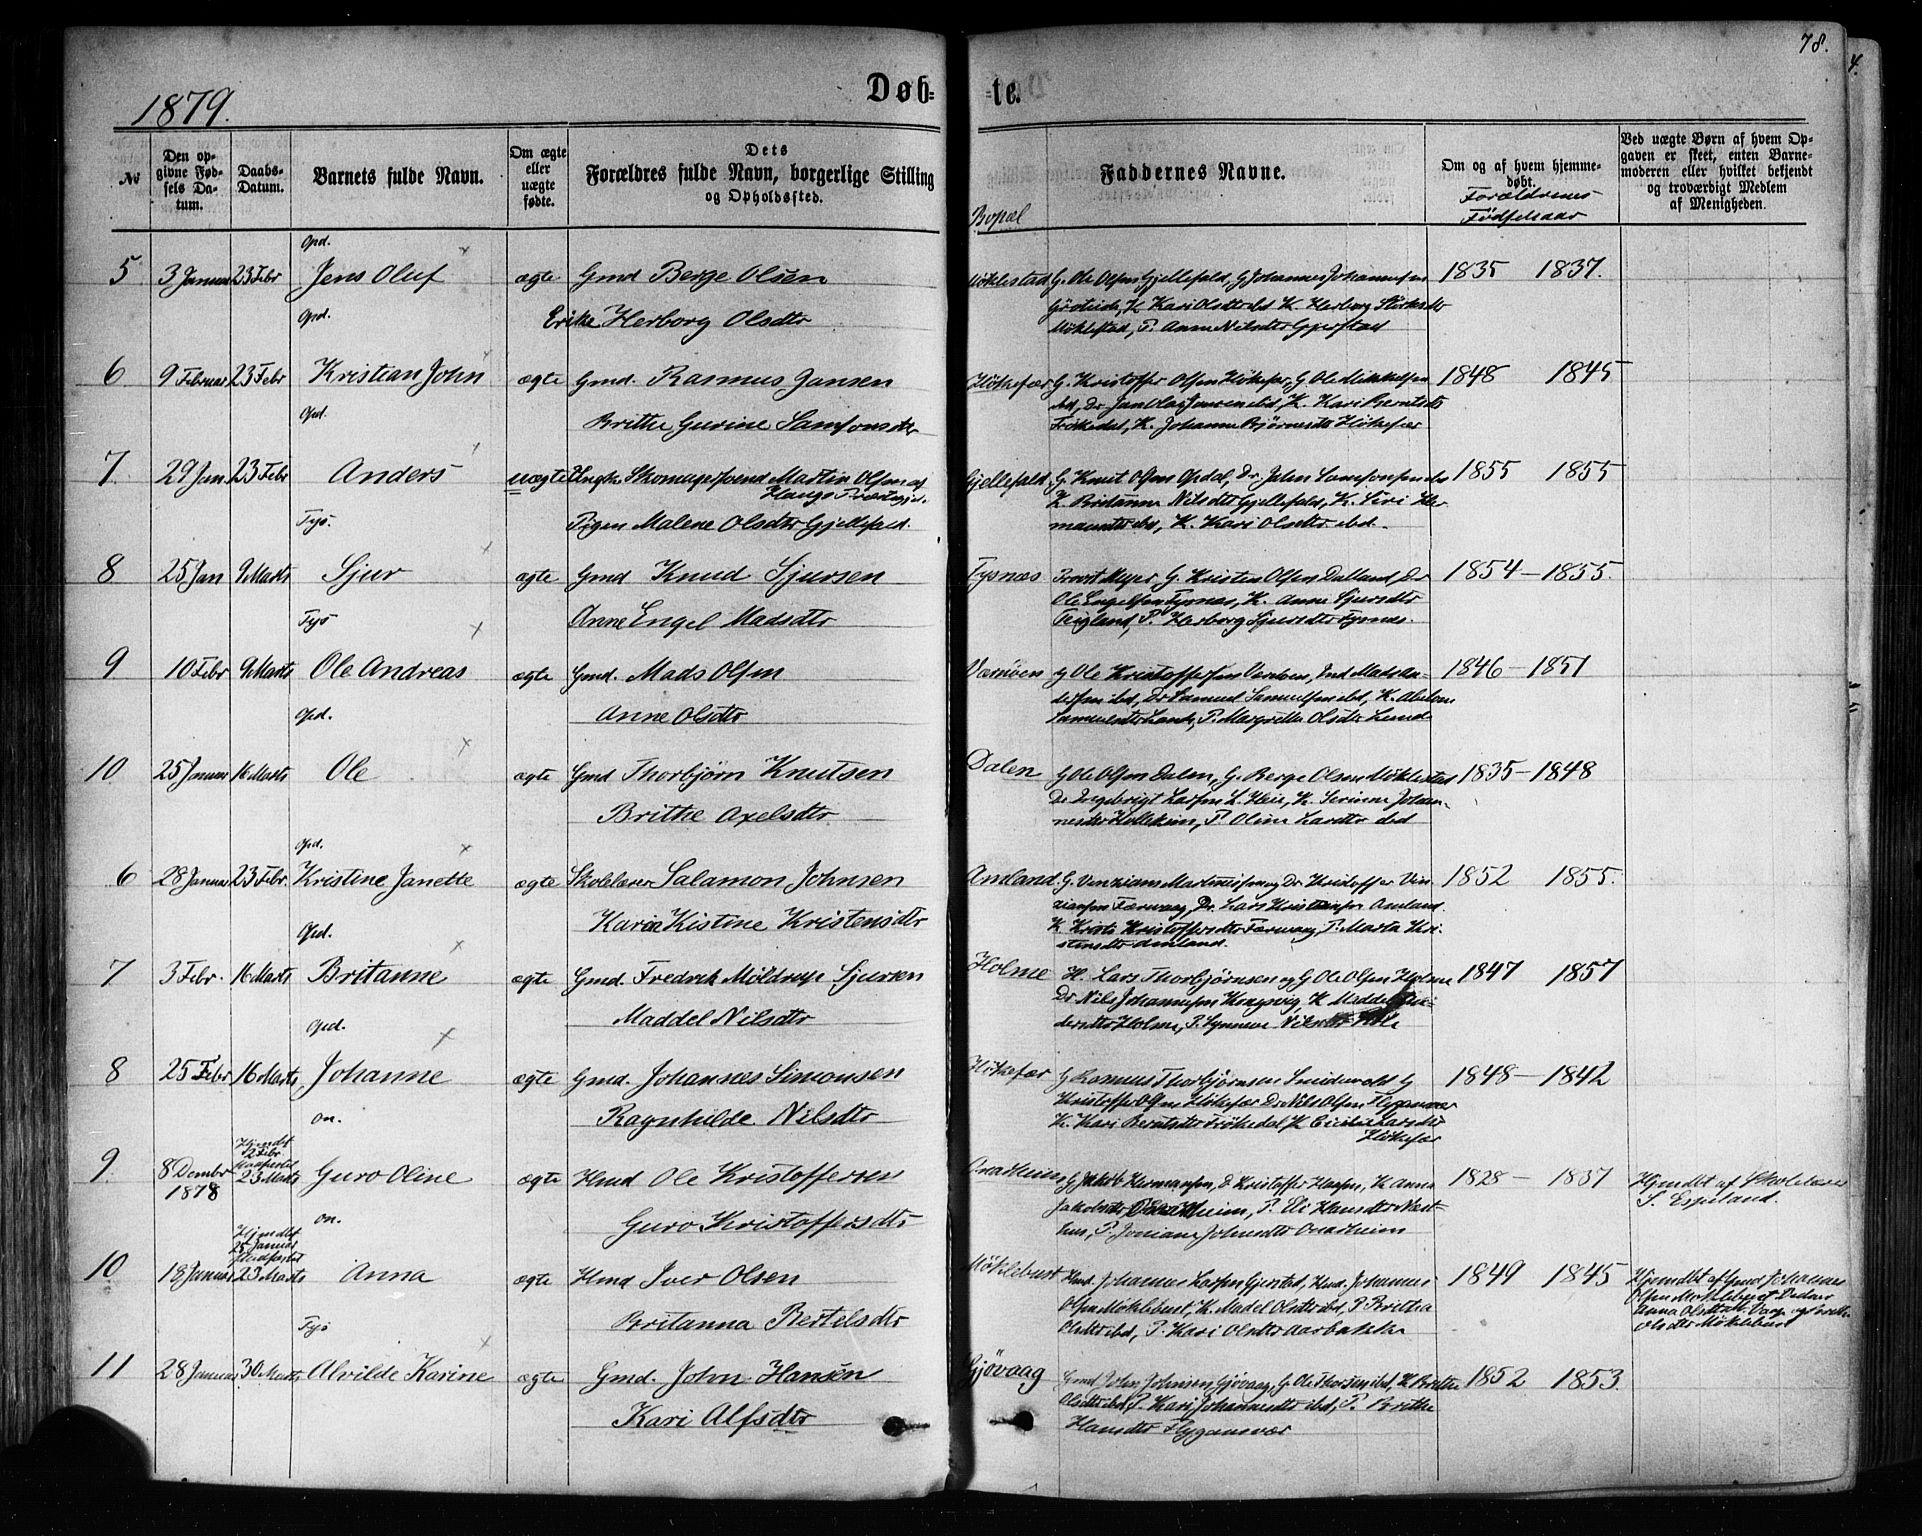 78.
1879.
Døb=
=te.
№
Den op-
givne Fød-
sels Da-
tum.
Daabs-
Datum.
Barnets fulde Navn.
Om ægte
eller
uægte
fødte.
Dets
Forældres fulde Navn, borgerlige Stilling
og Opholdssted.
Bopæl
Faddernes Navne.
Om og af hvem hjemme-
døbt.
Forældrenes
Fødselsaar
Ved uægte Børn af hvem Op-
gaven er skeet, enten Barne-
moderen eller hvilket bekjendt
og troværdigt Medlem
af Menigheden.
Opd.
5 3 Januar 23 Febr Jens Oluf ægte Gmd Berge Olsen
Erike Herborg Olsdtr
Møklestad G. Ole Olsen Gjellefald, G Johannes Johannesen
K. Kari Olsdtr ibd K. Herborg
Møklestad, P. Anne Nilsdtr Gjerstad
1835 1837.
Opd.
6 9 Februar 23 Febr Kristian John ægte Gmd. Rasmus Jansen
Brithe Gurine Samsonsdtr
Høkefær G. Kristoffer Olsen Høkefær, G. Ole Mikkelsen
ibd, Dr. Jan Olai Jansen ibd, K. Kari Berntsdtr
Frøkedal, K. Johanne Bjørnsdtr Høkefær
1848 1845
Opd.
7 29 Jan 23 Febr Anders uægte Ungk. Skomagersvend Martin Olsen af
Haugs Præstegjd.
Pigen Malene Olsdtr Gjellefald.
Gjellefald. G. Knut Olsen Opdal, Dr. John Samsonsen ibd
K. Britanna Nilsdtr Gjellefald, K. Siri Her
mansdtr ibd, K. Kari Olsdtr ibd.
1855 1855
Tys.
8 25 Jan 9 Marts Sjur ægte Gmd Knud Sjursen
Anne Engel Madsdtr
Tysnæs Provst Meyer, G. Kristen Olsen Dalland, Dr
Ole Engelsen Tysnæs, K. Anne Sjursdtr
Teigland, P. Herborg Sjursdtr Tysnæs.
1854 — 1855.
Tys
9 10 Febr 9 Marts Ole Andreas ægte Gmd. Mads Olsen
Anne Olsdtr
Værnøen G Ole Kristoffersen Værnøen, Ind Mads
ibd, Dr Samuel Samuelsen ibd, K.
P. Margrethe Olsdtr Lund
1846 — 1851
Opd.
10 25 Januar 16 Marts Ole ægte Gmd Thorbjørn Knutsen
Brithe Axelsdtr
Dalen G Ole Olsen Dalen, G. Berge Olsen Møklestad
Dr Ingebrigt Larsen L. Heie, K. Serina Johan-
nesdtr Helleksen, P. Oline Larsdtr ibd
1835 — 1848
Opd.
6 28 Januar 23 Febr. Kristine Janette ægte Skolelærer Salamon Johnsen
Karin Kistine Kristensdtr
Amland. G. Venzians Martinusen og Dr. Kristoffer Vin-
Færvaag, Dr. Lars Kristensen Amland.
K. Kristi Kristoffersdtr Færvaag, P. Marta Kri-
stensdtr Amland.
1852 1855.
Opd.
7 3 Febr. 16 Marts Britanne ægte Gmd. Fredrik Møldrup Sjursen
Maddel Nilsdtr
Holme H. Lars Thorbjørnsen og G Ole Olsen Holme
Dr. Nils Johannesen Kongsvig, K Maddel
Holme, P. Synneve Nilsdtr
1847 1857
Opd.
8 25 Febr 16 Marts Johanne ægte Gmd. Johannes Simonsen
Ragnhilde Nilsdtr
Høkefær G Rasmus Thorbjørnsen Smidevold G
Kristoffer Olsen Høkefær Dr. Nils Olsen Flygansvær
K. Kari Berntsdtr Frøkedal K Larsdtr
Høkefær
1848 — 1842
On.
9. 8 Decmbr 1878 Hjmdbt 2 Febr. 23 Marts Guro Oline ægte Hmd Ole Kristoffersen
Guro Kristoffersdtr
Anadheim G Jakob Hermansen, D Kristoffer Hansen, K Anna
Jakobsdtr Anadheim, P. Eli Hansdtr Næst-
hus, P. Joniane Johnsdtr Onadheim
1828 — 1837 Hjmdbt af Skolelærer
S. Espeland.
On.
10 18 Januar Hjmdbt 25 Januar 23 Marts Anna ægte Hmd Iver Olsen
Britanna Bertelsdtr
Møklebust Hmd. Johannes Larsen Gjerstad, Hmd. Johannes
Olsen Møklebust, K. Madel Olsdtr ibd, P Britha
Olsdtr ibd, P. Kari Olsdtr Aarbakke
1849 1845 Hjemdbt af Gmd Johannes
Olsen Møklebust
Anna Olsdtr Vaage og
Olsdtr Møklebust
Tys
11 28 Januar 30 Marts Alvilde Karine ægte Gmd. John Hansen
Kari Alfsdtr
Gjøvaag Gmd John Johnsen Gjøvaag, G. Ole Thorsen ibd, K Brithe
Olsdtr ibd, P. Kari Johannesdtr ibd, P. Brithe
Hansdtr Flygansvær
1852 1853.